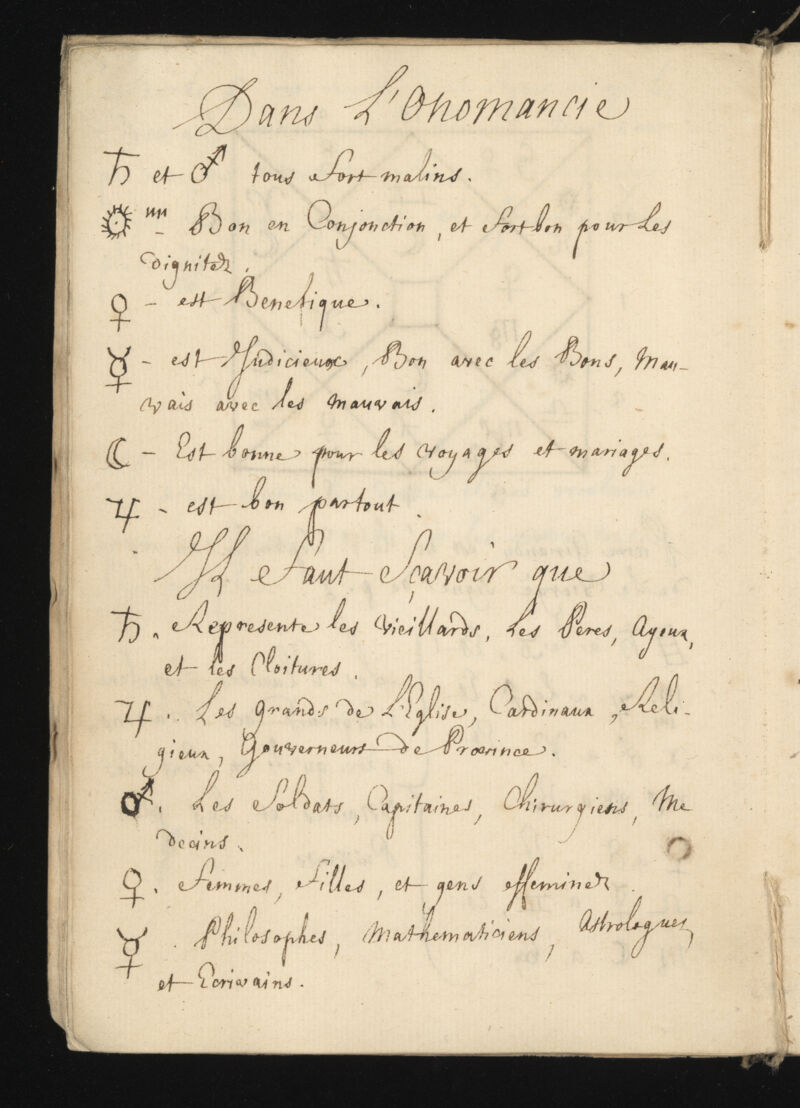 Dans L'Onomancie
♄ et ♂ tous fort malins.
☉ Bon en Conjonction, et fort bon pour Les
dignitez.
♀ - est Benefique.
☿ - est Judicieux, Bon avec les Bons, Mau-
vais avec les mauvais.
☾ - Est bonne pour les voyages et mariages.
♃ - est bon partout.
Il Faut Sçavoir que
♄. Represente les vieillards, Les Peres, Ayoux,
et les Cloitures.
♃. Les grands de L'Eglise, Cardinaux, Reli-
gieux, Gouverneurs de Province.
♂. Les Soldats, Capitaines, Chirurgiens, Me
decins.
♀. Femmes, Filles, et gens effeminez.
☿. Philosophes, Mathematiciens, Astrologues,
et Ecrivains.